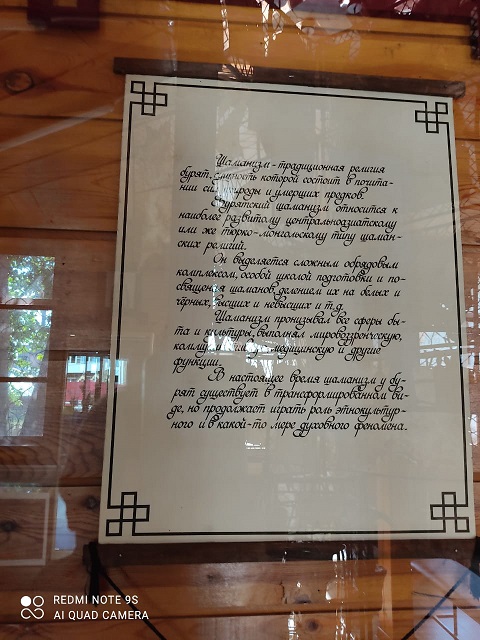 Шаманизм-традиционная религия
бурят, сущность которой состоит в почита-
нии сил природы и умерших предков.
Бурятский шаманизм относится к
наиболее развитому центральноазиатскому
или же тюрко-монгольскому типу шаман-
ских религий.
Он выделяется сложным обрядовым
комплексом, особой школой подготовки и по-
священия шаманов, делением их на белых и
чёрных, высших и невысших и т.д.
Шаманизм пронизывал все сферы бы-
та и культуры, выполнял мировоззренческую,
медицинскую и другие
функции.
В настоящее время шаманизм у бу-
рят существует в трансформированном ви-
де, но продолжает играть роль этнокультур-
ного и в какой-то мере духовного феномена.
REDMI NOTE 9S
AI QUAD CAMERA